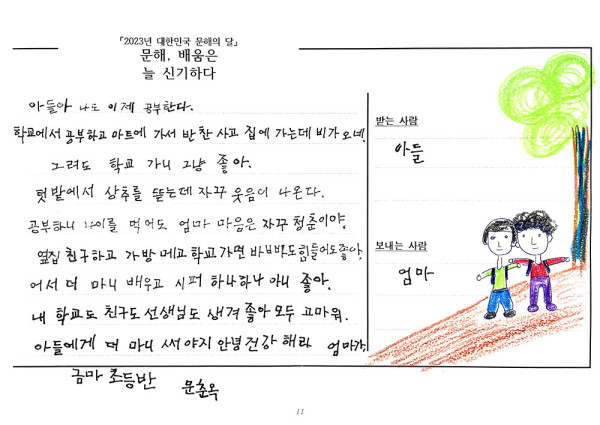 「2023년 대한민국 문해의 달」
문해, 배움은
늘 신기하다
아들아 나도 이제 공부한다.
학교에서 공부하고 마트에 가서 반찬 사고 집에 가는데 비가 오네.
그려도 학교 가니 그냥 좋아.
텃밭에서 상추를 뜯는데 자꾸 웃음이 나온다.
공부하니 나이를 먹어도 엄마 마음은 자꾸 청춘이야.
옆집 친구하고 가방 메고 학교 가면 바빠도 힘들어도 좋아.
어서 더 마니 배우고 시퍼 하나하나 아니 좋아.
내 학교도 친구도 선생님도 생겨 좋아 모두 고마워.
아들에게 더 마니 써야지 안녕 건강 해라 엄마가.
금마 초등반 문춘옥
받는 사람
아들
보내는 사람
엄마
11